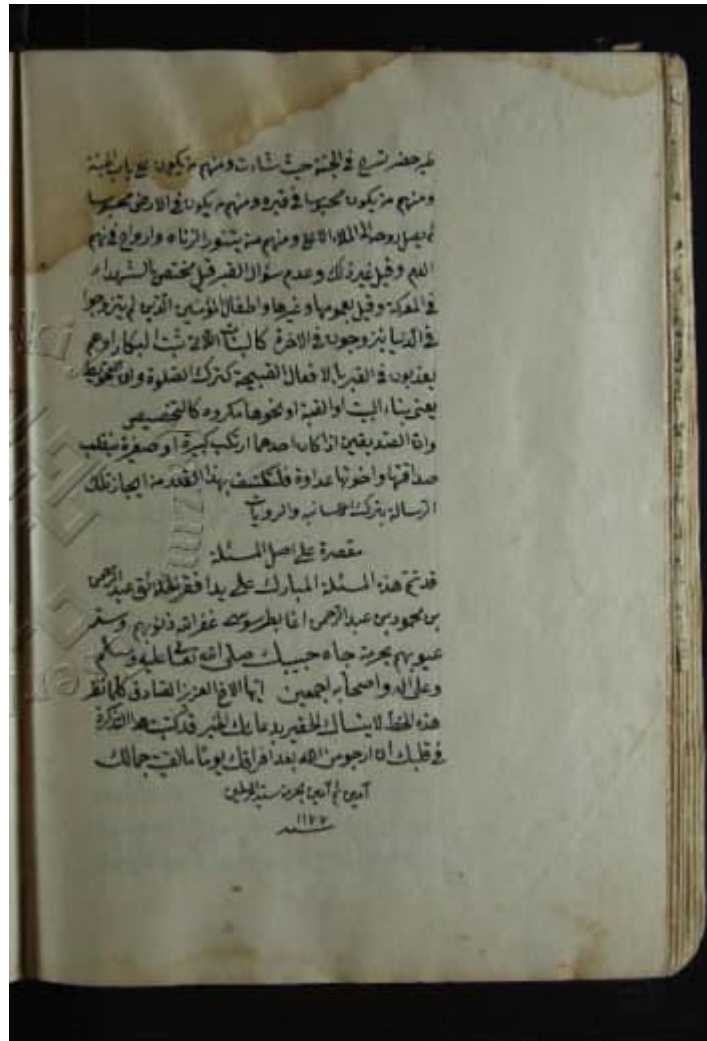 طير خضر تسرح في الجنة حيث شاءت ومنهم من يكون على باب الجنة
ومنهم من يكون محبوسا في قبره ومنهم من يكون في الارض محبوسا
لم يصل روحه الى الملاء الاعلى ومنهم من بتنور الزناة وارواح في نهر
الدم وقيل غير ذلك وعدم سؤال القبر قيل مختص بالشهداء
في المعركة وقيل بعمومها وغيرها واطفال المؤمنين الذين لم يتزوجوا
في الدنيا يتزوجون في الاخرة كالبنات البكارا وهم
يعذبون في القبر بالافعال القبيحة كترك الصلوة وان
يعنى بناء البيت او القبة او نحوها مكروه كالتخصيص
وان الصديقين اذا كان احدهما ارتكب كبيرة او صغيرة ينقلب
صداقتها واخوتها عداوة فلنكتف بهذا القدر من ايجاز تلك
الرسالة بترك الاسانيد والروايات
مقصرة على اصل المسئلة
قد تمت هذه المسئلة المبارك على يد افقر الخلائق عبد الرحمن
بن محمود بن عبد الرحمن اغا غفر الله ذنوبهم وستر
عيوبهم بحرمة جاه حبيبك صلى الله تعالى عليه وسلم
وعلى اله واصحابه اجمعين ايها الاخ العزيز الصادق كلما نظر
هذه الخط لا ينساك الحقير بدعائك الخير قد كتبت هذا التذكرة
في قلبك ان ارجو من الله بعد افراقك يوما جمالك
آمين ثم آمين بحرمة سيد المرسلين
سنه ١١٢٢